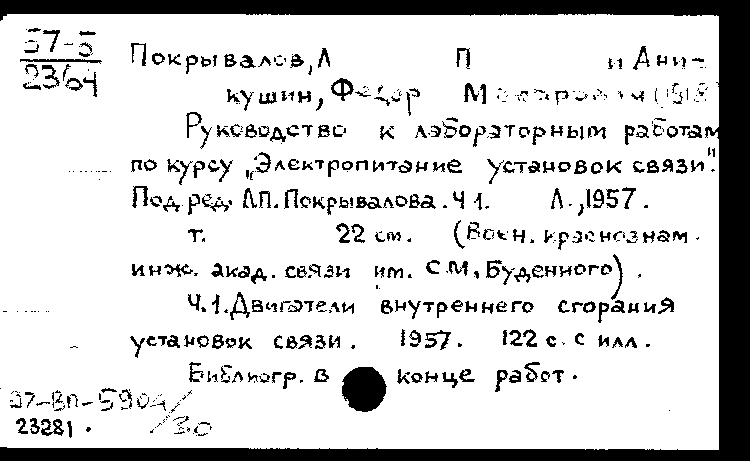 57-5
2364
Покрывалов, Л П и Ани-
кушин, Федор Макарович (1918
Руководство к лабораторным работам
по курсу „Электропитание установок связи".
Под ред. Л.П. Покрывалова. Ч 1. Л., 1957.
т. 22 см. (Воен. краснознам.
инж. акад. связи им. С.М. Буденного).
Ч.1. Двигатели внутреннего сгорания
установок связи. 1957. 122 с. с илл.
Библиогр. в конце работ.
37-ВП-5904/30
23281.